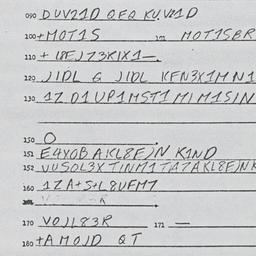 090 DUVZ1D QFQ KU.VZ1D
100 +MOT1S 101 MOT1SBR
110 + 18EJZ3KIX1—.
120 JIDL G JIDL KFN3X1MN1
130 1Z D1UP1MST1 M1M1SIN
150 O
151 E4YOBAKL8EJN K1ND
152 VUSOL3XTINM1TAZAKL8EJNK
160 1ZA+S+L8UFM7
170 VOJL83R 171 —
180 +AMOJD QT